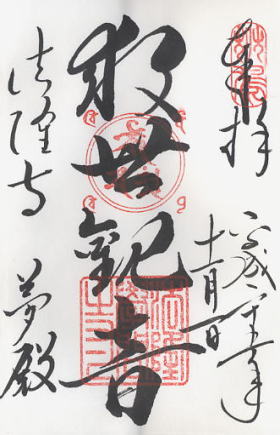 奉拝
平成二十三年
十一月一日
救世観音
法隆寺
夢殿